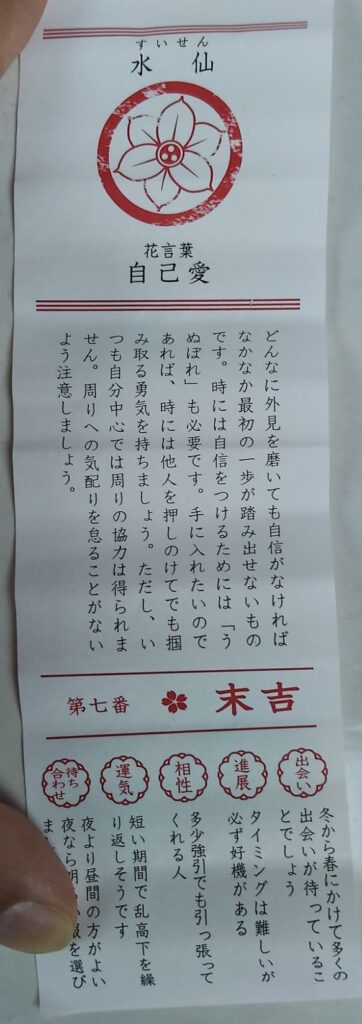 すいせん
水仙
花言葉
自己愛
どんなに外見を磨いても自信がなければ
なかなか最初の一歩が踏み出せないもの
です。時には自信をつけるためには「う
ぬぼれ」も必要です。手に入れたいので
あれば、時には他人を押しのけてでも掴
み取る勇気を持ちましょう。ただし、い
つも自分中心では周りの協力は得られま
せん。周りへの気配りを怠ることがない
よう注意しましょう。
末吉
第七番
出会い
冬から春にかけて多くの
出会いが待っているこ
とでしょう
進展
タイミングは難しいが
必ず好機がある
相性
多少強引でも引っ張って
くれる人
運気
短い期間で乱高下を繰
り返しそうです
待ち
合わせ
夜より昼間の方がよい
夜なら明るい服を選び
ま